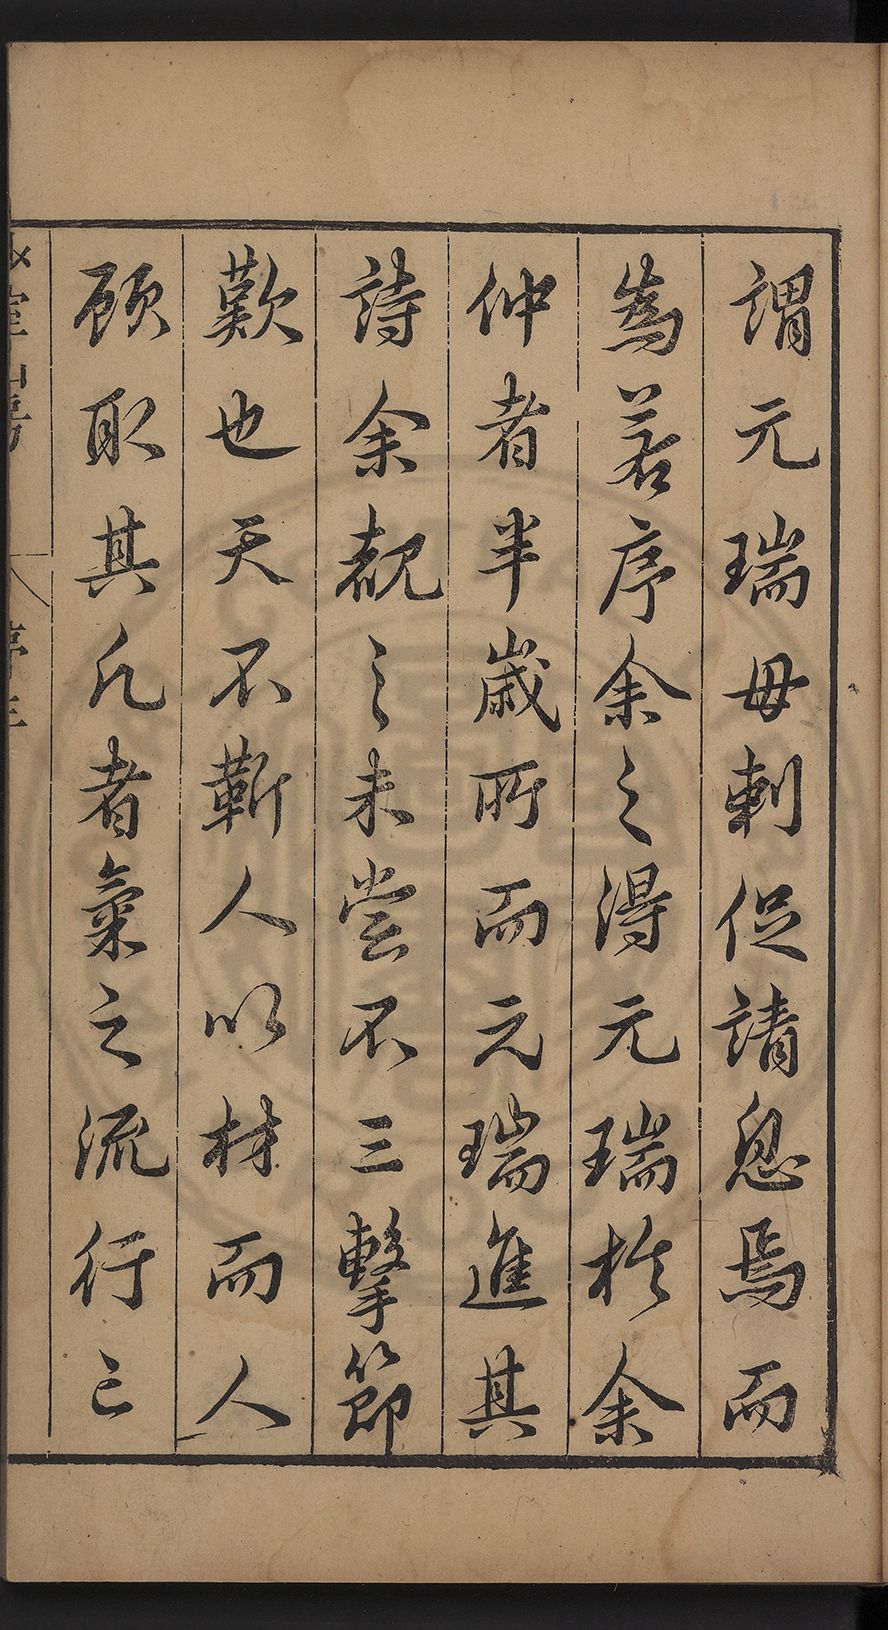 謂元瑞毋剌促請息焉而
為若序余之得元瑞於余
仲者半歲所而元瑞進其
詩余覩之未嘗不三擊節
歎也天不靳人以材而人
顧取其凡者氣之流行已